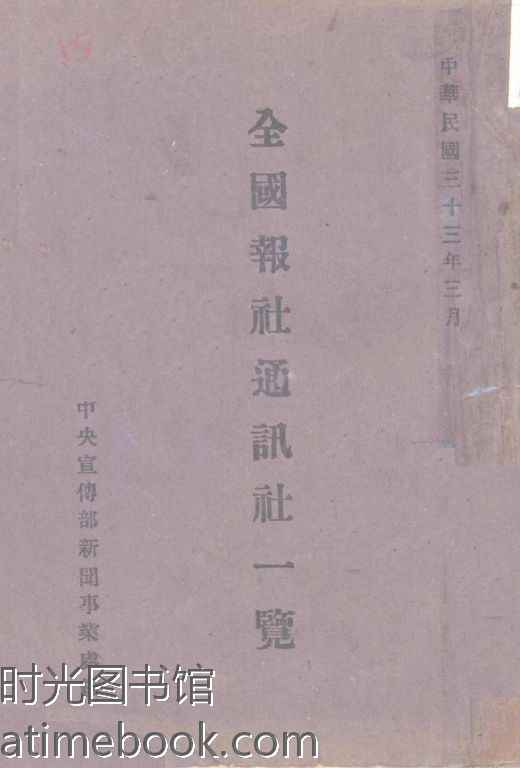 中華民國三十三年三月
全國報社通訊社一覽
中央宣傳部新聞事業處
时光图书馆
atimebook.com